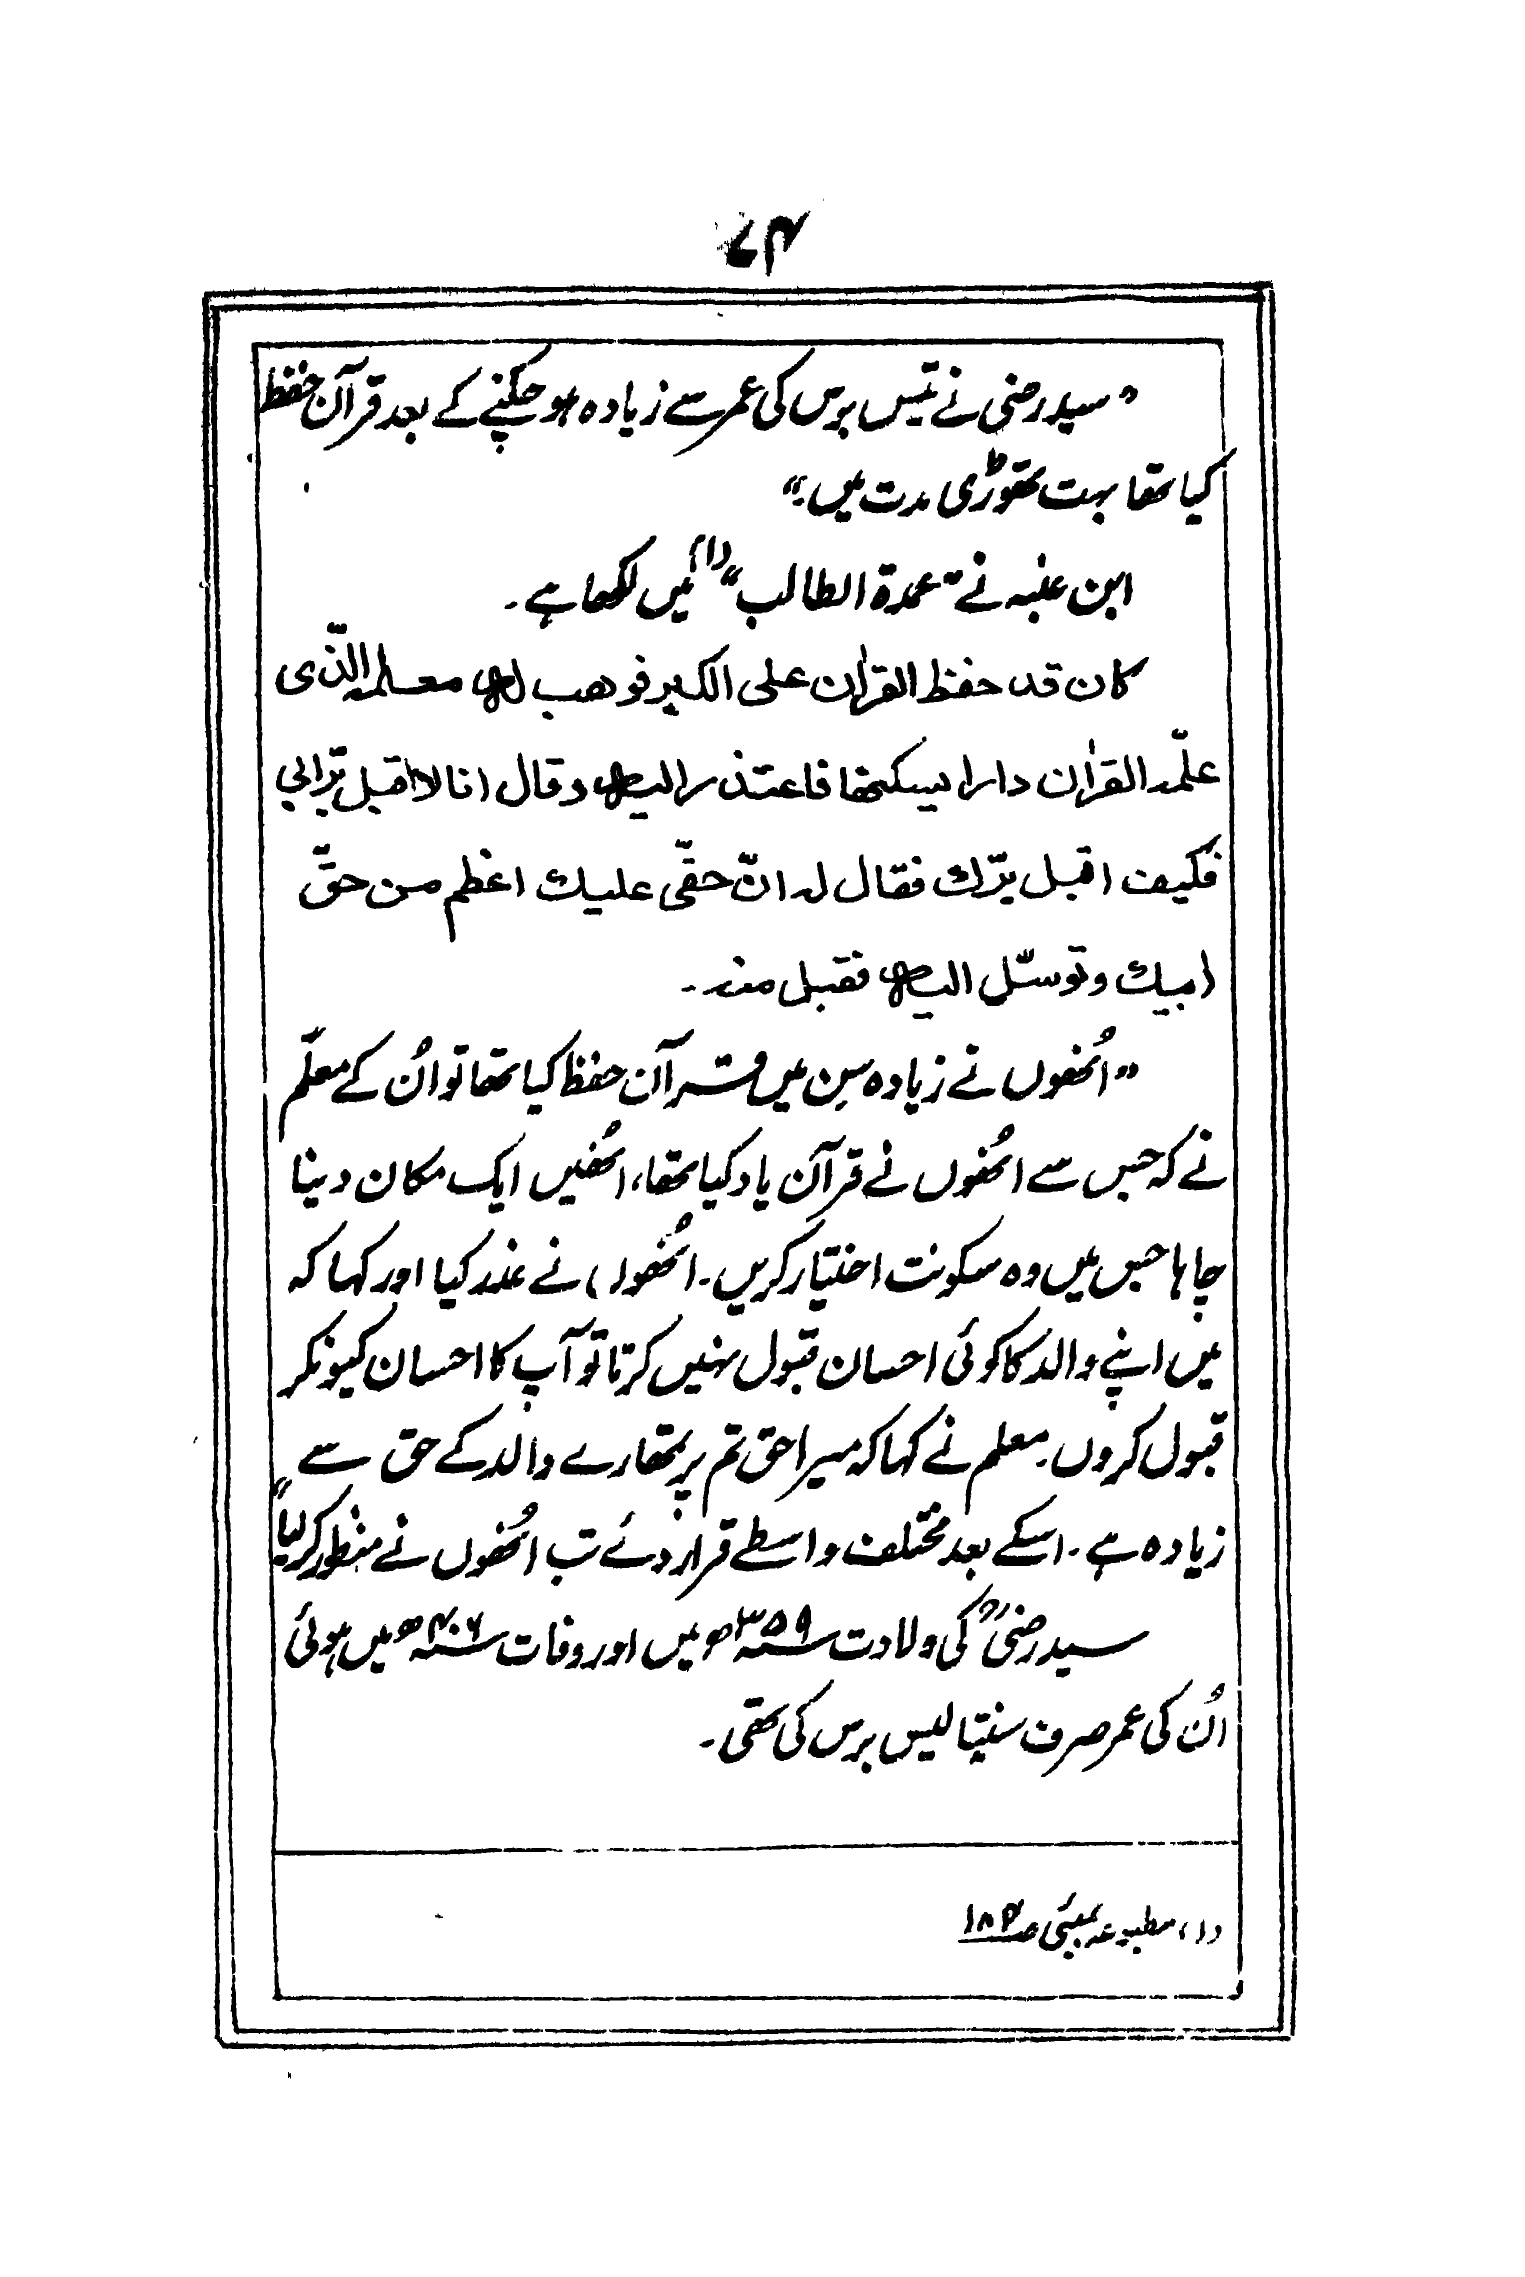 ۴۷
”سید رضی نے تیس برس کی عمر سے زیادہ ہو چکنے کے بعد قرآن حفظ
کیا تھا بہت تھوڑی مدت میں۔“
ابن عنبہ نے ”عمدۃ الطالب“(۱) میں لکھا ہے۔
کان قد حفظ القراٰن علی الکبر فوھب لہ معلمہ الذّی
علّمہ القراٰن دارا یسکنھا فاعتذر الیہ وقال انا لا اقبل برّ ابی
فکیف اقبل برّک فقال لہ انّ حقّی علیک اعظم من حقّ
ابیک وتوسّل الیہ فقبل منہ۔
”اُنھوں نے زیادہ سِن میں قرآن حفظ کیا تھا تو اُن کے معلّم
نے کہ جس سے اُنھوں نے قرآن یاد کیا تھا، اُنھیں ایک مکان دینا
چاہا جس میں وہ سکونت اختیار کریں۔ اُنھوں نے عذر کیا اور کہا کہ
میں اپنے والد کا کوئی احسان قبول نہیں کرتا تو آپ کا احسان کیونکر
قبول کروں۔ معلم نے کہا کہ میرا حق تم پر تمھارے والد کے حق سے
زیادہ ہے۔ اسکے بعد مختلف واسطے قرار دئے تب اُنھوں نے منظور کر لیا“
سید رضیؒ کی ولادت ۳۵۹ھ میں اور وفات ۴۰۶ھ میں ہوئی
اُن کی عمر صرف سنیتالیس برس کی تھی۔
(۱) مطبوعہ بمبئی ص۱۸۴